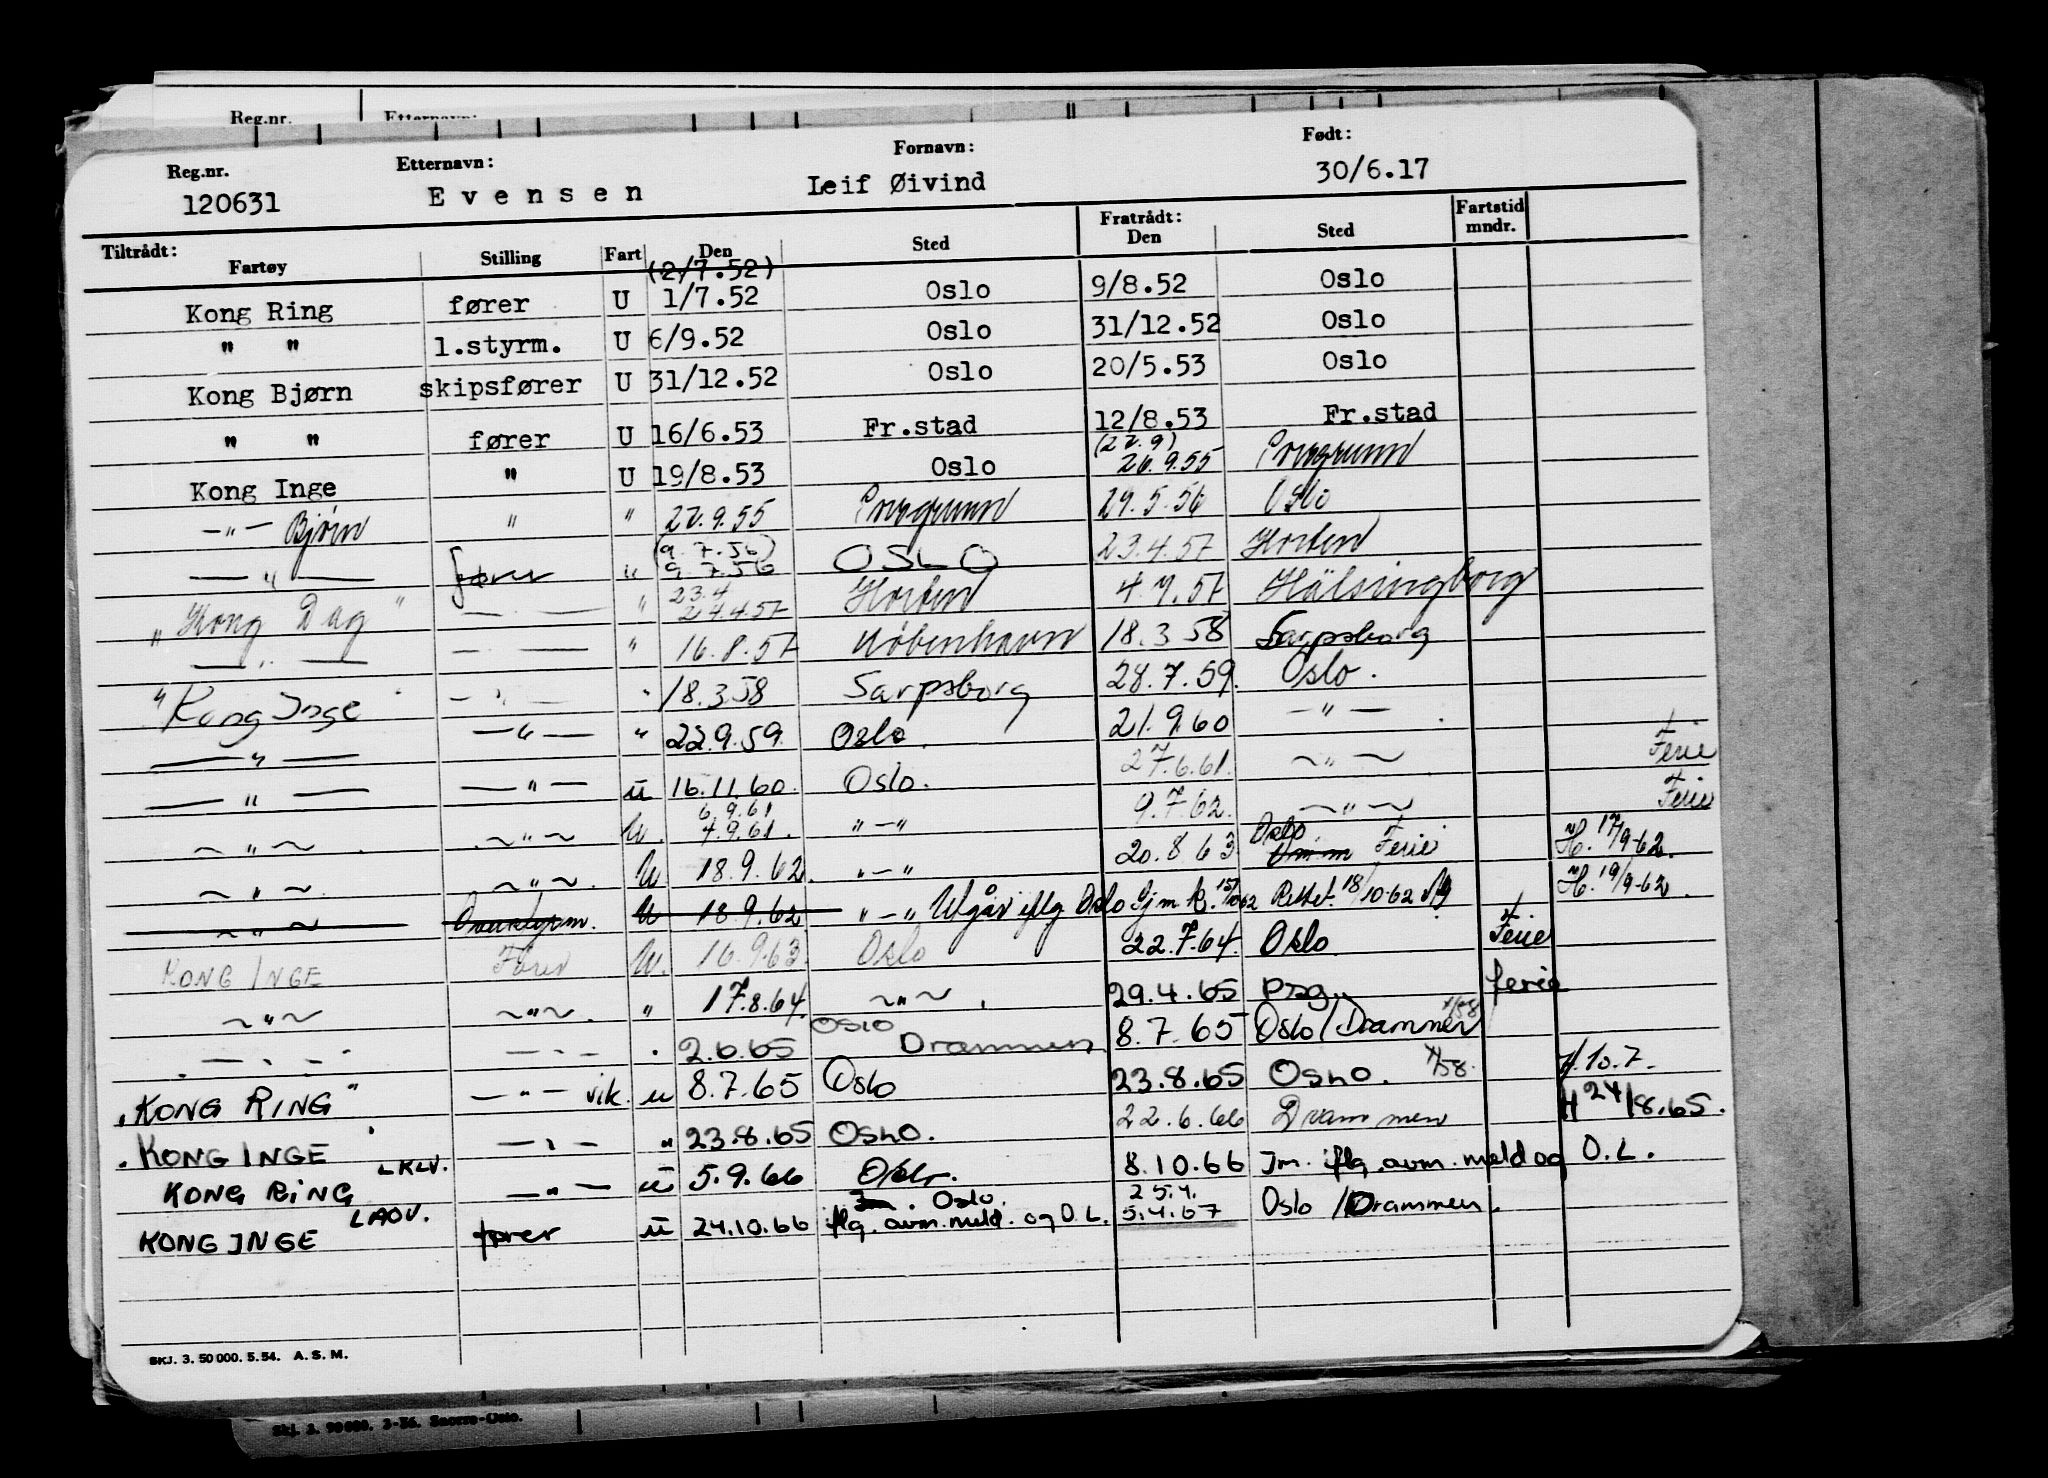 Reg.nr. Etternavn:
Reg.nr. Etternavn: Fornavn: Født:
120631 Evensen Leif Øivind 30/6.17
Tiltrådt: Fratrådt: Fartstid
Fartøy Stilling Fart Den Sted Den Sted mndr.
(2/7.52)
Kong Ring fører U 1/7.52 Oslo 9/8.52 Oslo
" " 1.styrm. U 6/9.52 Oslo 31/12.52 Oslo
Kong Bjørn skipsfører U 31/12.52 Oslo 20/5.53 Oslo
" " fører U 16/6.53 Fr.stad 12/8.53 Fr.stad
Kong Inge " U 19/8.53 Oslo 26.9.55 Porsgrunn
—"— Bjørn " " 27.9.55 Porsgrunn 29.5.56 Oslo
(9.7.56)
—"— fører " 9.7.56 OSLO 23.4.57 Horten
23.4
"Kong Dag" —"— " 24.4.57 Horten 4.7.57 Hälsingborg
—"— —"— " 16.8.57 København 18.3.58 Sarpsborg
"Kong Inge" —"— " 18.3.58 Sarpsborg 28.7.59. Oslo.
—"— —"— " 22.9.59. Oslo. 21.9.60 —"—
—"— —"— u 16.11.60. Oslo. 27.6.61. —"— Ferie
6.9.61
—"— —"— U. 4.9.61. "—" 9.7.62. —"— Ferie
—"— —"— U 18.9.62. "—" 20.8.63 Oslo Ferie H. 17/9-62.
—"— Overstyrm. U 18.9.62 "—" Utgår iflg Oslo Sjm k. 15/10 62 Rettet 18/10-62 H. 19/9-62.
KONG INGE Fører U. 16.9.63. Oslo 22.7.64. Oslo. Ferie
—"— —"—. " 17.8.64. —"—. 29.4.65 Psg. ferie
Oslo
—"— —"— " 2.6.65 Drammen 8.7.65 Oslo/Drammen §/58
"KONG RING" —"— vik. u 8.7.65 Oslo 23.8.65 OSLO. §/58. H.10.7.
"KONG INGE" —"— " 23.8.65 OSLO. 22.6.66 Drammen H 24/8.65.
KONG RING LKLV. —"— u 5.9.66 Oslo. 8.10.66 Jm. iflg. avm. meld og O.L.
Oslo. 25.4.
KONG INGE LAOV. fører u 24.10.66 iflg. avm. meld. og O.L. 5.4.67 Oslo/Drammen.
SKJ. 3. 50 000. 5.54. A.S.M.
Skj. 3. 90 000. 3-56. Snorre-Oslo.